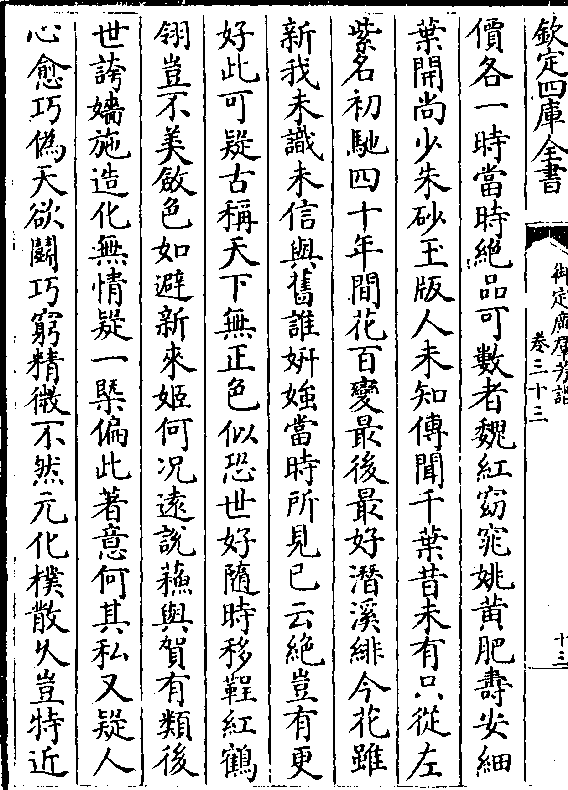 欽定四庫全書
御定廣羣芳譜
卷三十三
十三
價各一時當時絶品可數者魏紅窈窕姚黄肥壽安細
葉開尚少朱砂玉版人未知傳聞千葉昔未有只從左
紫名初馳四十年間花百變最後最好潛溪緋今花雖
新我未識未信與舊誰妍媸當時所見已云絶豈有更
好此可疑古稱天下無正色似恐世好隨時移鞓紅鶴
翎豈不美斂色如避新來姬何况逺說蘓與賀有類後
世誇嬙施造化無情疑一槩偏此著意何其私又疑人
心愈巧偽天欲鬭巧窮精微不然元化樸散久豈特近